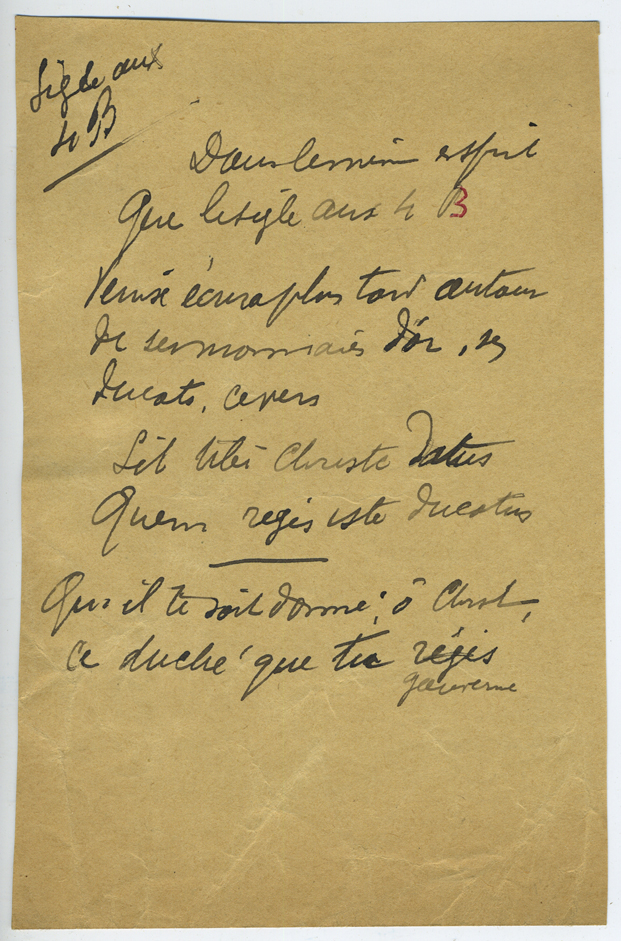 Sigle aux
4 B
Dans le même esprit
Que le sigle aux 4 B
Venise écrira plus tard autour
de ses monnaies d'or, ses
ducats, ce vers
Sit tibi Christe datus
Quem regis iste ducatus
Qu'il te soit donné, ô Christ,
ce duché que tu régis
gouverne